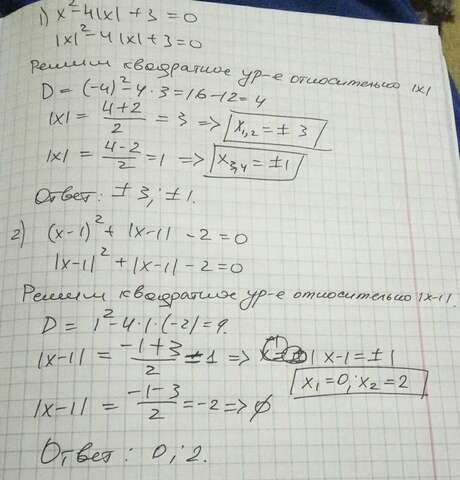 1) x²-4|x|+3=0
|x|²-4|x|+3=0
Решим квадратное ур-е относительно |x|
D = (-4)²-4·3=16-12=4
|x| = (4+2)/2 = 3 => x₁,₂ = ± 3
|x| = (4-2)/2 = 1 => x₃,₄ = ±1
Ответ: ± 3; ±1.
2) (x-1)² + |x-1| - 2 = 0
|x-1|² + |x-1| - 2 = 0
Решим квадратное ур-е относительно |x-1|.
D = 1²-4·1·(-2)=9.
|x-1| = (-1+3)/2 = 1 => x-1 = ±1
x₁=0; x₂=2
|x-1| = (-1-3)/2 = -2 => ∅
Ответ: 0; 2.